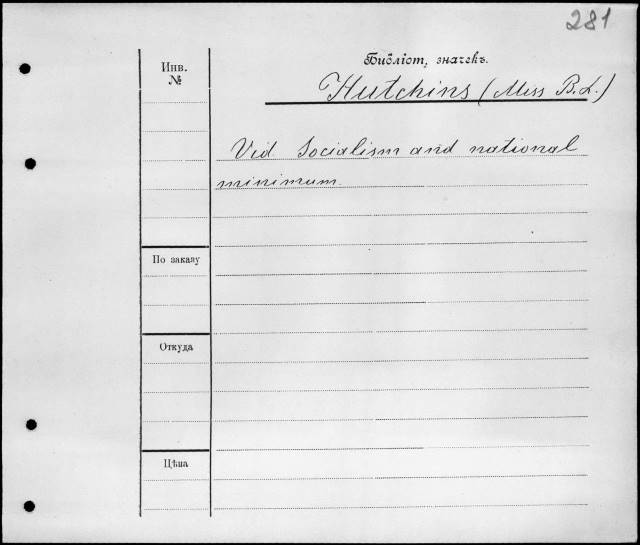 281
Библіот. значекъ.
Инв.
№
Hutchins (Miss B.L.)
Vid Socialism and national
minimum.
По заказу
Откуда
Цѣна